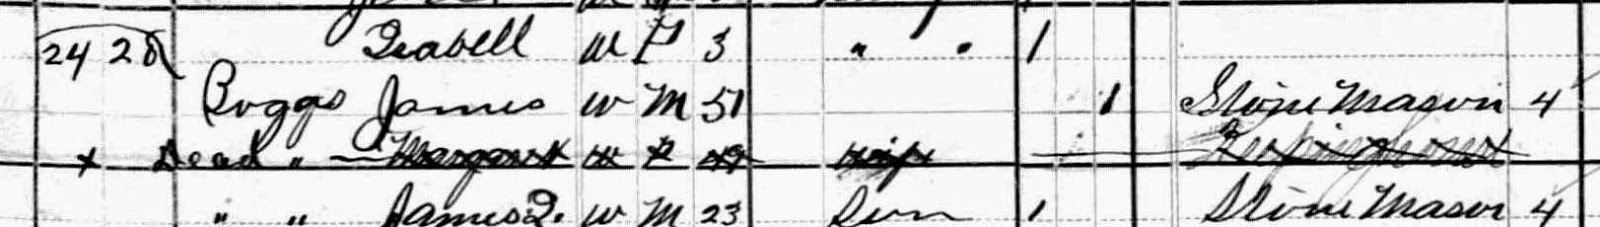 Isabell W F 3 " " 1
24 28 Boggs James W M 51 1 Stone Mason 4
x Dead " Margaret W F 49 wife Keeping house
" " James Q. W M 23 Son 1 Stone Mason 4